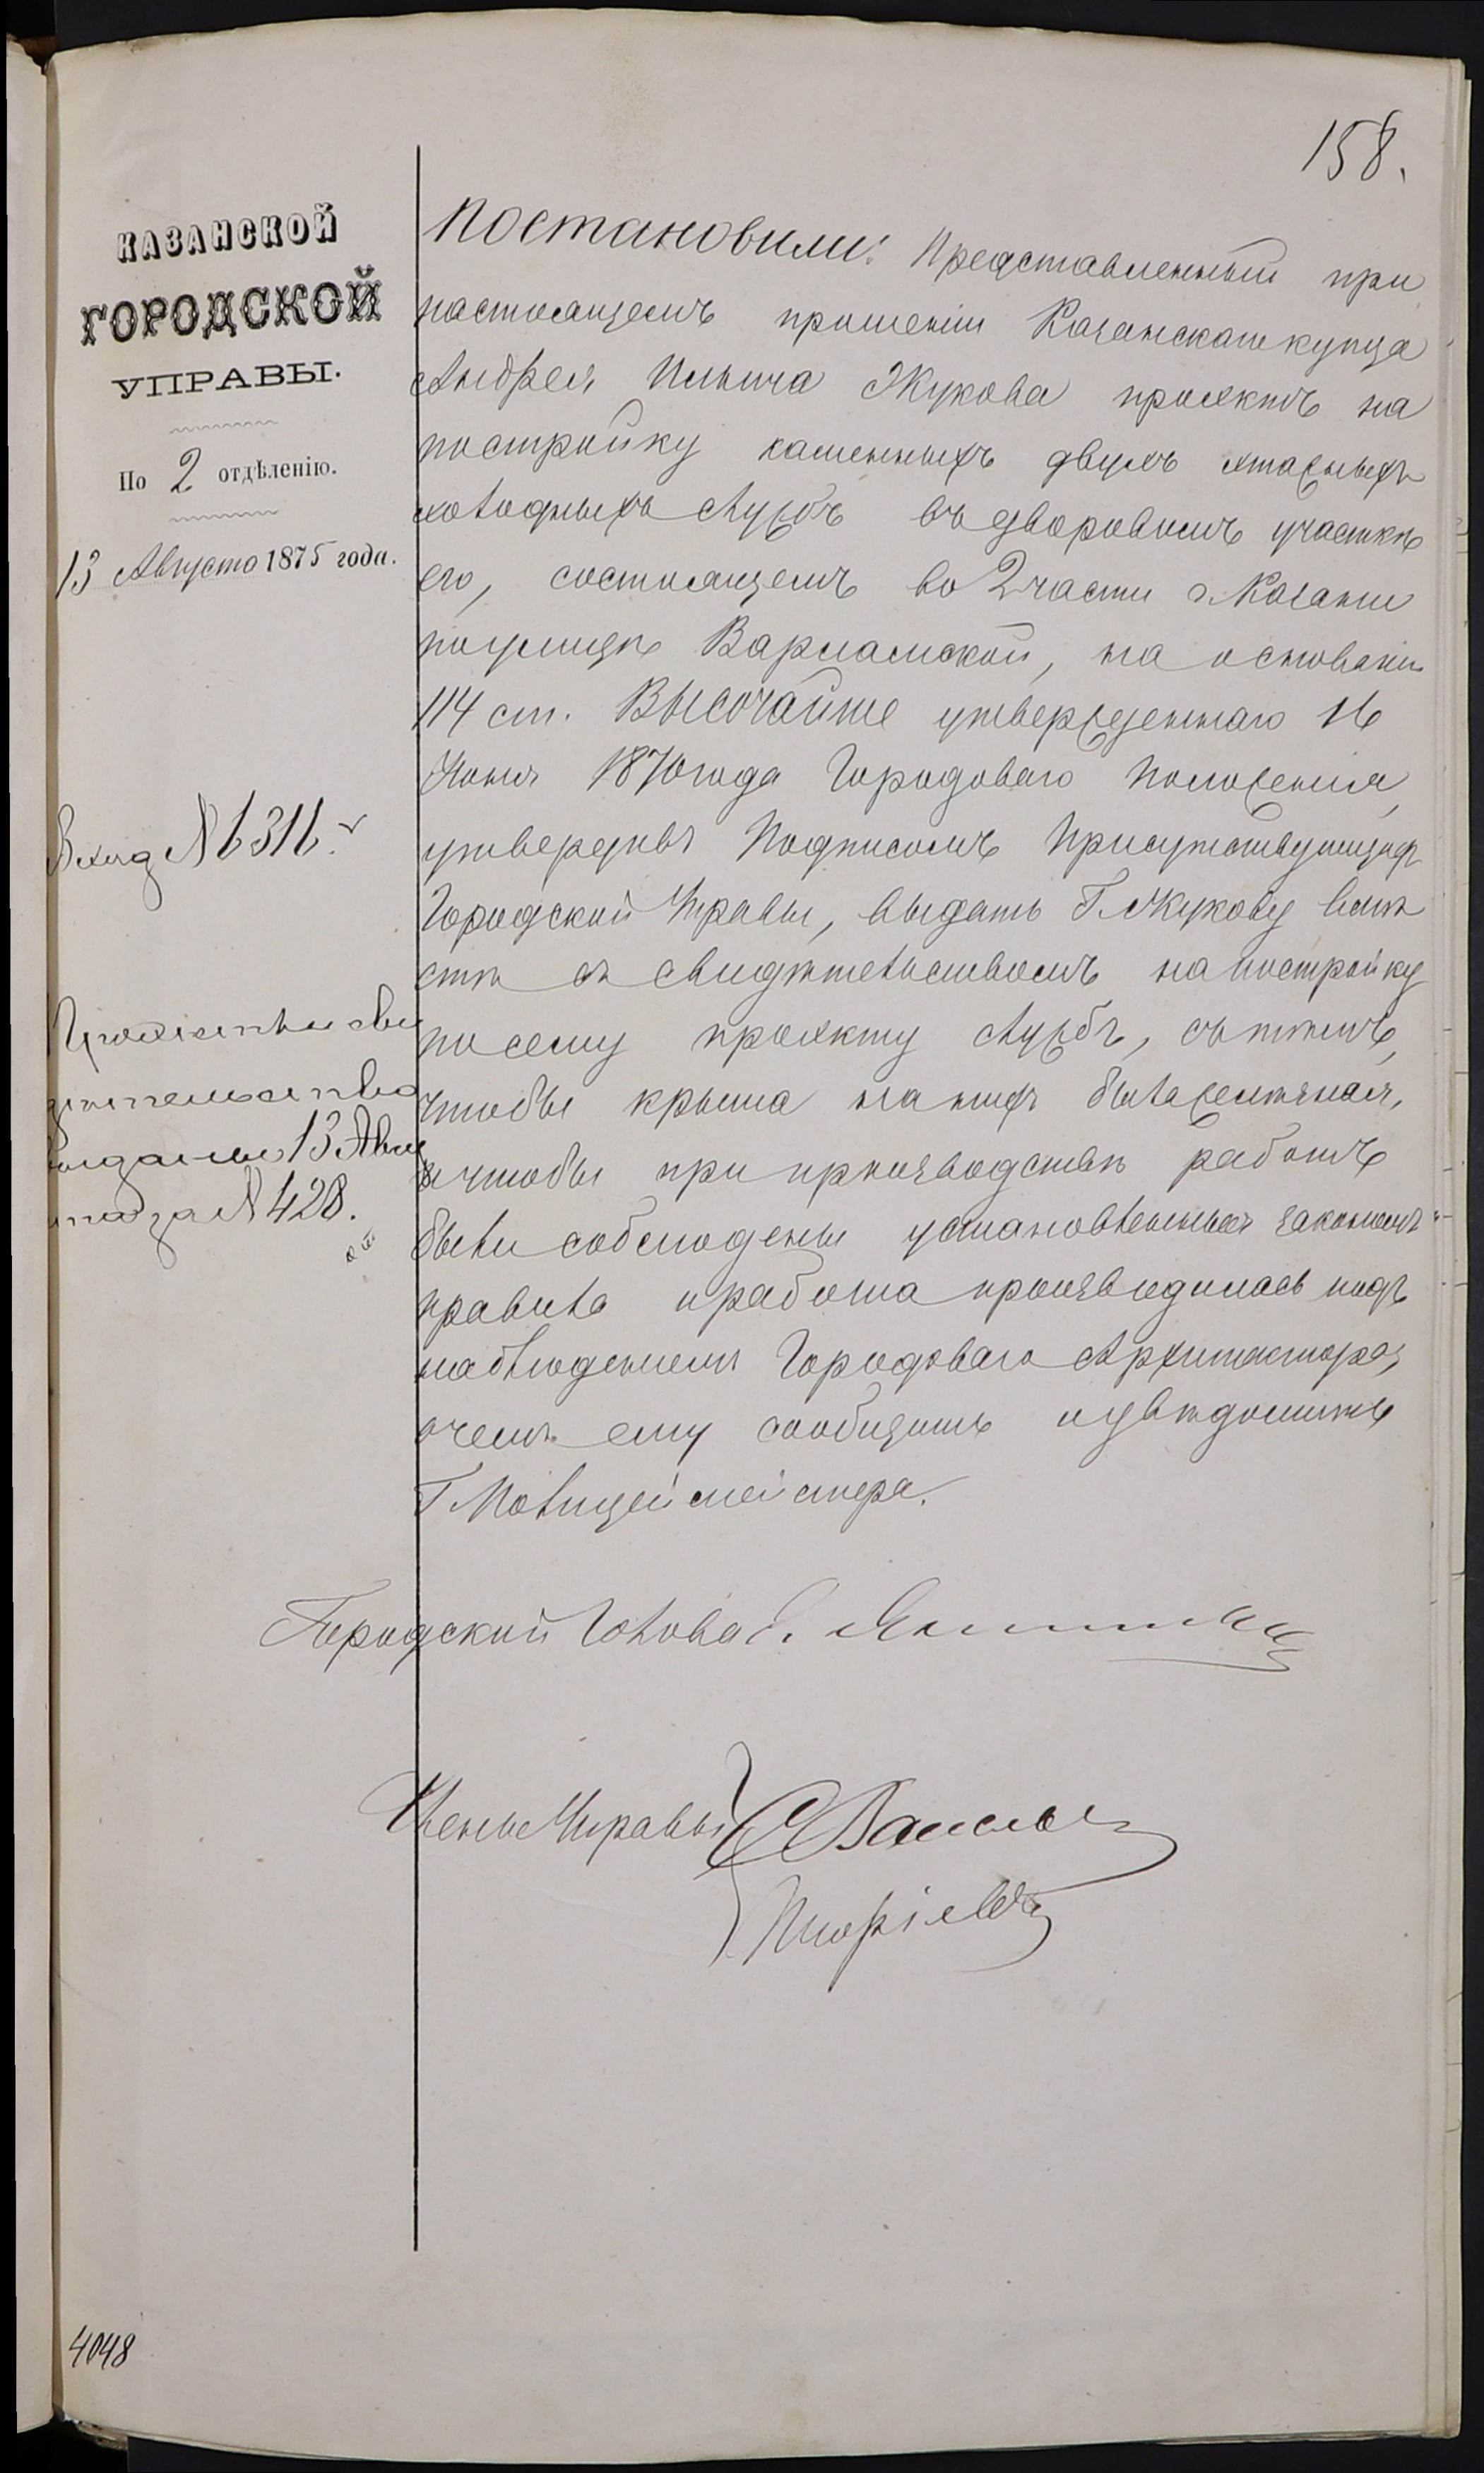 158.
КАЗАНСКОЙ
ГОРОДСКОЙ
УПРАВЫ.
По 2 отдѣленію.
13 Августа 1875 года.
Вход № 6316.
Проэктъ и сви
дѣтельство
выданы 13 Авгу
ста за № 428.
Постановили: Представленный при
настоящемъ прошеніи Казанскаго купца
Андрея Ильича Жукова проэктъ на
постройку каменныхъ двухъ этажныхъ
холодныхъ службъ въ дворовомъ участкѣ
его, состоящемъ во 2 части г. Казани
по улицѣ Варламской, на основаніи
114 ст. ВЫСОЧАЙШЕ утвержденнаго 16
Іюня 1870 года Городоваго Положенія,
утвердивъ подписомъ Присутствующихъ
Городской Управы, выдать Г. Жукову вмѣ
стѣ съ свидѣтельствомъ на постройку
по сему проэкту службъ, съ тѣмъ,
чтобы крыша на нихъ была желѣзная,
и чтобы при производствѣ работъ
были соблюдены установленныя закономъ
правила и работа производилась подъ
наблюденіемъ Городоваго Архитектора,
о чемъ ему сообщить и увѣдомить
Г. Полицеймейстера.
Городской Голова Э. Янишевскій
Члены Управы
4048